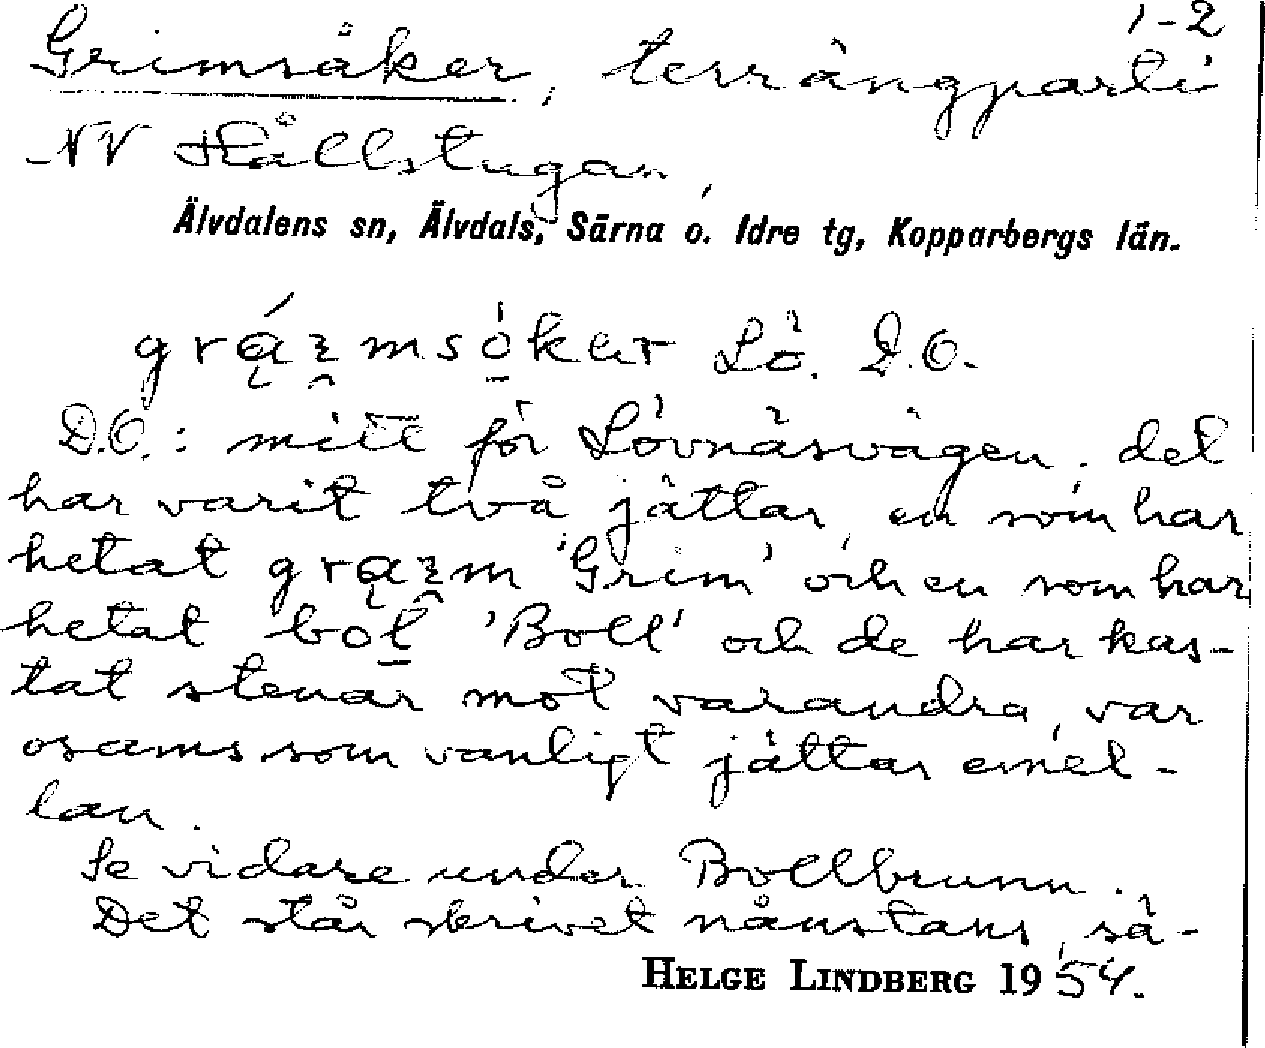 1-2
Grimsåker, terrängparti
NV Hållstugan,
Älvdalens sn, Älvdals, Särna o. Idre tg, Kopparbergs län.
Lö. D.O.
D.O.: mitt för Lövnäsvägen. det
har varit två jättar, en som har
hetat 'Grim' och en som har
hetat 'Boll' och de har kas-
tat stenar mot varandra, var
osams som vanligt jättar emel-
lan.
Se vidare under Bollbrunn.
Det står skrivet nånstans, sä-
HELGE LINDBERG 1954.